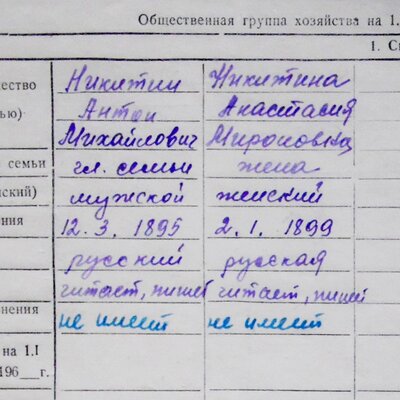 Общественная группа хозяйства на 1.
1. С
ество
ью)
Никитин Никитина
Антон Анастасия
Михайлович Мироновна
семьи гл. семьи жена
ский) мужской женский
ния 12. 3. 1895 2. 1. 1899
русский русская
читает, пишет читает, пишет
нения не имеет не имеет
на 1.I
196 г.